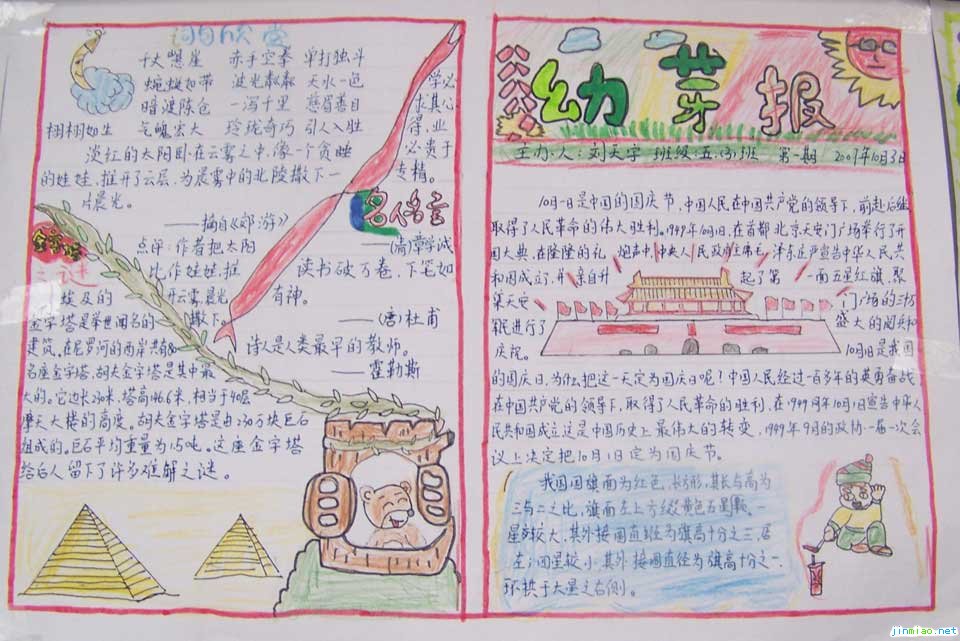 词欣赏
悬崖 赤手空拳 单打独斗
波光粼粼 天水一色
暗渡陈仓 一泻千里 慈眉善目
栩栩如生 气魄宏大 玲珑奇巧 引人入胜
淡红的太阳卧在云雾之中,像一个贪睡
的娃娃,推开了云层,为晨雾中的北陵撒下一
片晨光。
——摘自《郊游》
点评:作者把太阳
比作娃娃,推
开云雾,晨光
撒下。
学必
求其心
得,业
必贵于
专精。
名人格言
——(清)章学诚
读书破万卷,下笔如
有神。
——(唐)杜甫
诗是人类最早的教师。
——霍勒斯
金字塔
之谜
埃及的
金字塔是举世闻名的
建筑,在尼罗河的西岸共有80
名座金字塔,胡夫金字塔是其中最
大的。它边长230米,塔高146.6米,相当于40层
摩天大楼的高度。胡夫金字塔是由230万块巨石
组成的。巨石平均重量为1.5吨。这座金字塔
给后人留下了许多难解之谜。
幼芽报
主办人:刘天宇 班级:五.(3)班 第一期 2007年10月3日
10月1日是中国的国庆节,中国人民在中国共产党的领导下,前赴后继,
取得了人民革命的伟大胜利。1949年10月1日,在首都北京天安门广场举行了开
国大典,在隆隆的礼炮声中,中央人民政府主席毛泽东庄严宣告中华人民共
和国成立,并亲自升起了第一面五星红旗,聚
集天安门广场的三十万
军民进行了盛大的阅兵和
庆祝。10月1日是我国
的国庆日,为什么把这一天定为国庆日呢?中国人民经过一百多年的英勇奋战
在中国共产党的领导下,取得了人民革命的胜利,在1949年10月1日宣告中华人
民共和国成立这是中国历史上最伟大的转变,1949年9月的政协一届一次会
议上决定把10月1日定为国庆节。
我国国旗面为红色,长方形,其长与高为
三与二之比,旗面左上方缀黄色五星五颗。一
星较大,其外接圆直径为旗高十分之三,居
左;四星较小,其外接圆直径为旗高十分之一,
环拱于大星之右侧。
jinmiao.net